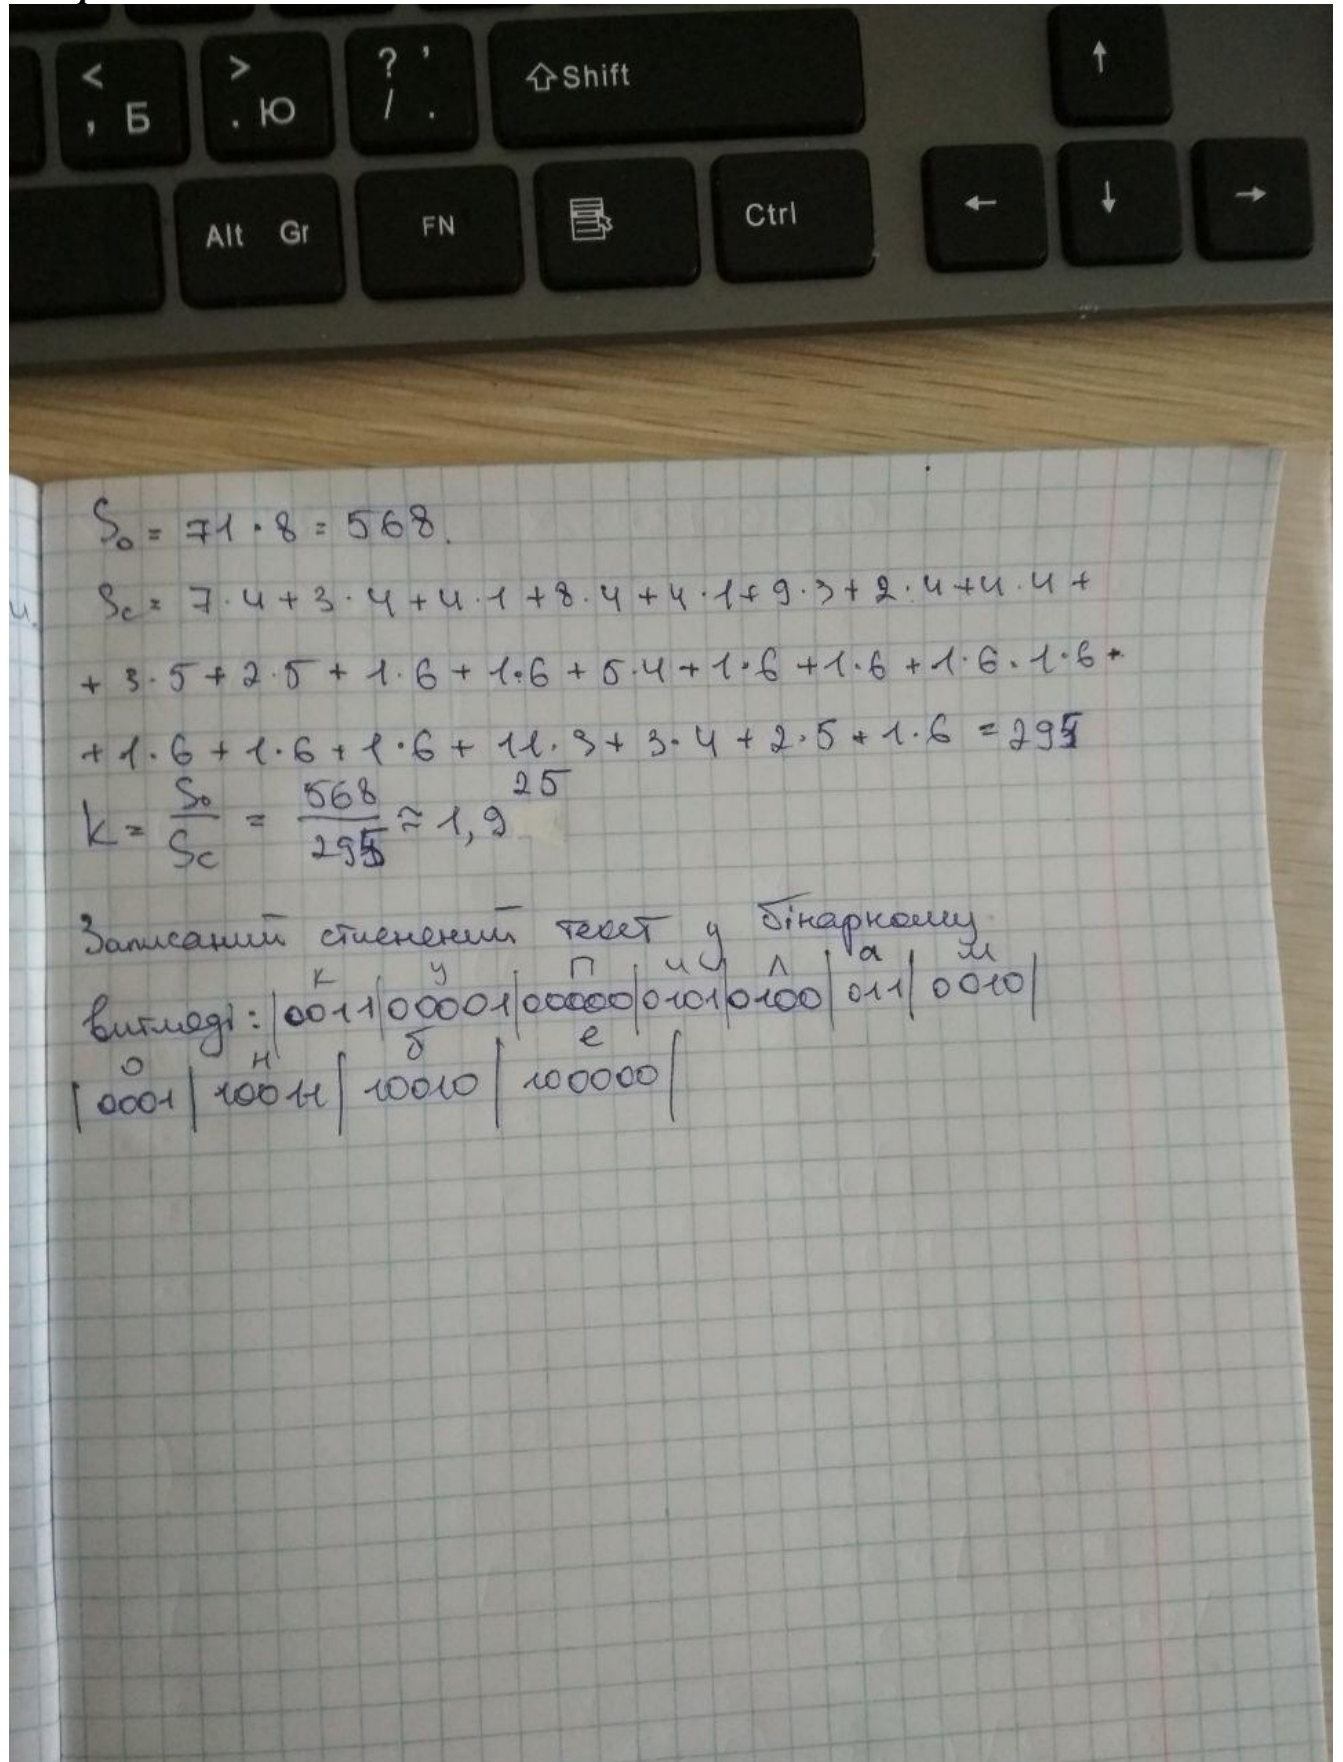 < > ? ’ ⇧Shift ↑
, Б . Ю / .
Alt Gr FN Ctrl ← ↓ →
S₀ = 71 · 8 = 568.
Sc = 7·4 + 3·4 + 4·1 + 8·4 + 4·1 + 9·3 + 2·4 + 4·4 +
+ 3·5 + 2·5 + 1·6 + 1·6 + 5·4 + 1·6 + 1·6 + 1·6 · 1·6 +
+ 1·6 + 1·6 + 1·6 + 11·3 + 3·4 + 2·5 + 1·6 = 295
25
K = S₀/Sc = 568/295 ≈ 1,9
Записаний стиснений текст у бінарному
к у п и л а м
вигляді: |0011|00001|00000|0101|0100|011|0010|
о н б е
|0001|10011|10010|100000|